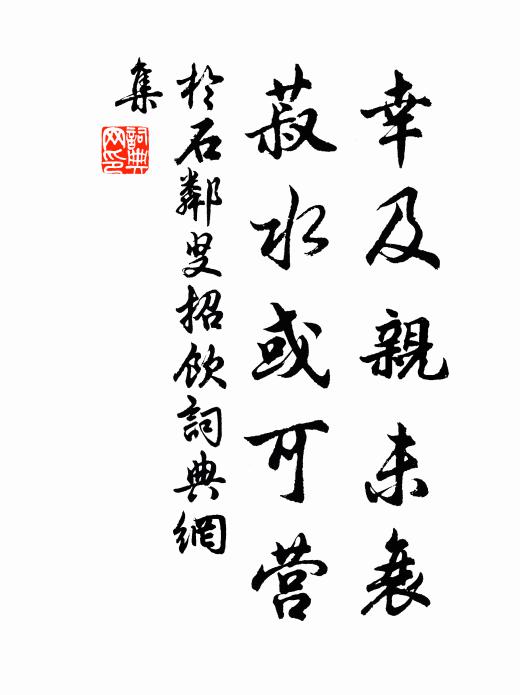 幸及親未衰
菽水或可營
於石鄰叟招飲詞典網
集
詞典網印